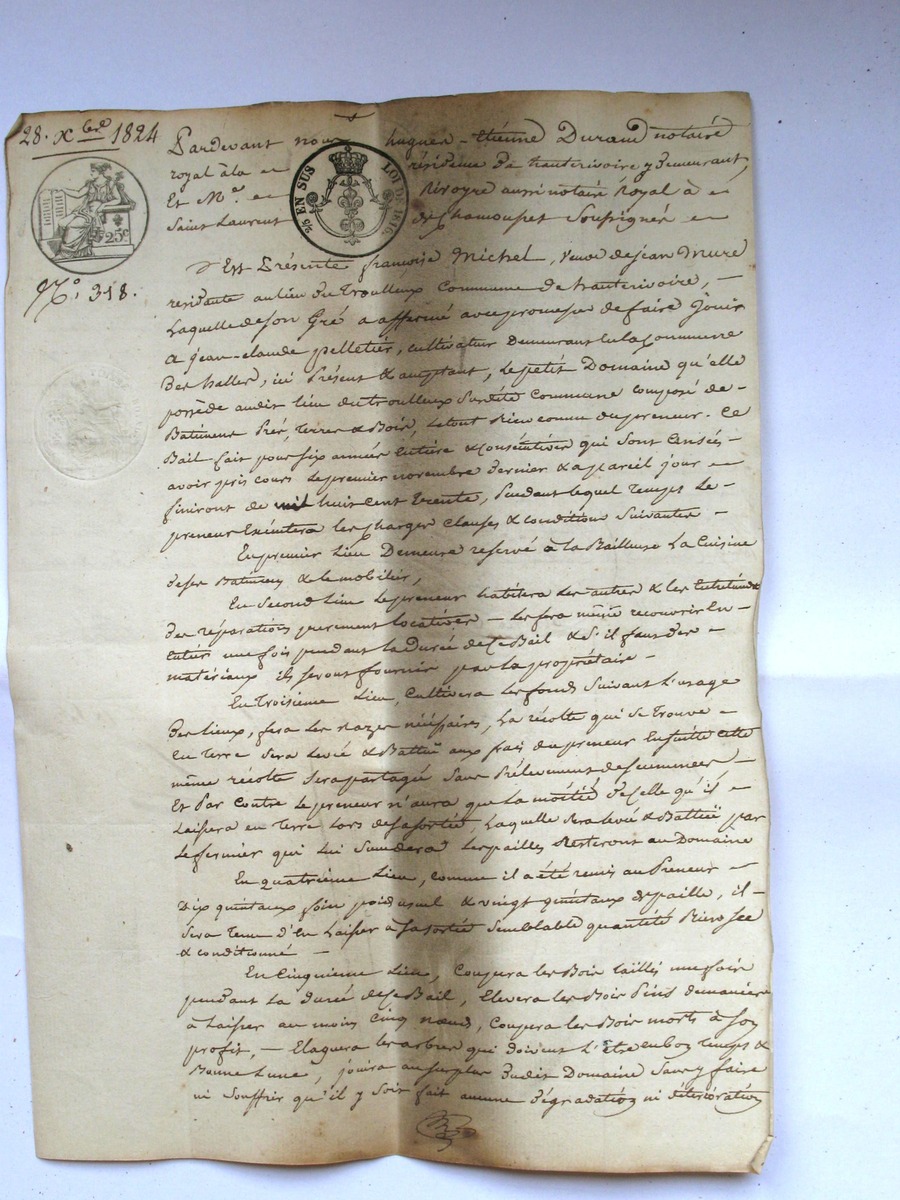 28. Xbre 1824
25 EN SUS
LOI DE 1816.
25c
No. 318.
Pardevant nous hugues-Etienne Durand notaire
royal à la résidence de hauterivoire y demeurant,
Et Me. Rivoyre aussi notaire Royal à
Saint Laurent de Chamousset Soussignés
Est Présente françoise Michel, veuve de jean Mure
residante au lieu du Troulleux Commune de hauterivoire, -
Laquelle de son Gré a affermé avec promesse de faire jouir
a jean-claude pelletier, cultivateur Demeurant en la Commune
Des halles, ici Présent & acceptant, Le petit Domaine qu'elle
possède audit lieu du troulleux Susdite Commune composé de -
Batiment Prés, Terres & Bois, Le tout Bien connu du preneur. Ce
Bail fait pour six années Entière & Consécutives qui Sont Censées -
avoir pris cours Le premier novembre Dernier & a pareil jour -
finiront de mil huit Cent trente, Pendant lequel Temps Le -
preneur Exécutera les Charges Clauses & conditions Suivantes -
En premier Lieu Demeure reservé à la Bailleuse La Cuisine
de ses Batimens & le mobilier,
En Second Lieu Le preneur habitera Les autres & les Entretiendra
Des réparations purement locatives - Les fera même recouvrir En -
Entier une fois pendant la Durée de Ce Bail & S'il faut Des -
matériaux ils seront fournir par La propriétaire -
En Troisieme Lieu, Cultivera Les fonds Suivant L'usage
Des Lieux, fera Les razes nécessaires, La récolte qui Se Trouve -
En Terre Sera Levée & Battue aux frais du preneur Ensuite Cette
même récolte Sera partagée Sans Prélevement de Semences -
Et Par Contre Le preneur n'aura que La moitié de Celle qu'il -
Laissera en Terre Lors de sa sortie, Laquelle Sera Levée & Battue par
Le fermier qui Lui Succedera Les pailles Resteront au Domaine
En quatrième Lieu, comme il a été remis au Preneur -
Dix quintaux foin poid usuel & vingt quintaux de paille, il -
Sera Tenu d'En Laisser à Sa sortie Semblable quantité Bien sec
& conditionné -
En Cinquieme Lieu, Coupera Les Bois taillis une fois
pendant La Durée de Ce Bail, Elevera Les Bois Pins demanière
à Laisser au moins Cinq nœuds, Coupera Les Bois morts à Son
profit, - Elaguera les arbres qui doivent L'Etre en bon Temps &
Bonne Lune, jouira au surplus Dudit Domaine Sans y faire
ni Souffrir qu'il y Soit fait aucune Dégradation ni Détérioration